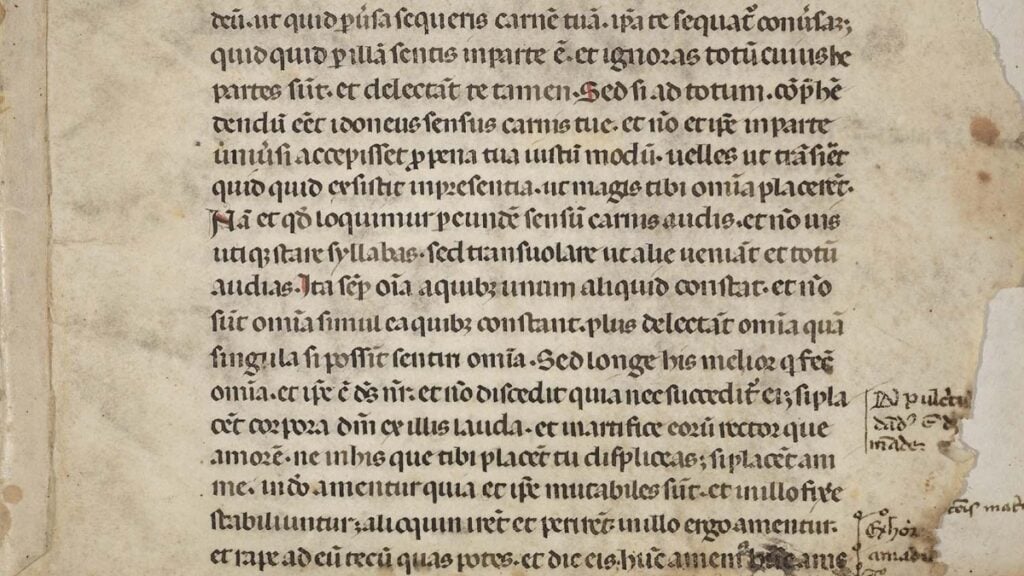 deū. ut quid ꝑu͛sa sequeris carnē tuā. ip̄a te sequat᷑ conu͛saꝫ;
quid quid ꝑ illā sentis in parte ē. et ignoras totū cuius he
partes sūt. et delectāt te tamen. Sed si ad totum. cōp̄hē
dendū eēt idoneus sensus carnis tue. et nō et ip̄e in parte
uniu͛si accepisset ꝓ pena tua iustū modū. uelles ut trāsiret
quid quid existit in presentia. ut magis tibi om̄ia placerēt.
Nā et qđ loquimur ꝑ eundē sensū carnis audis. et nō uis
utiqꝫ stare syllabas. sed transuolare ut alie ueniāt et totū
audias. Ita semꝑ om̄ia a quibꝫ unum aliquid constat. et nō
sūt om̄ia simul ea quibꝫ constant. plus delectāt om̄ia quā
singula si possīt sentiri om̄ia. Sed longe his melior q̄ fec̄
om̄ia. et ip̄e ē d̄s nr̄. et nō discedit quia nec succedit᷑ ei; si pla
cēt corpora dm̄ ex illis lauda. et in artifice eorū rector que
amorē. ne in his que tibi placēt tu displiceas; si placēt am
me. in dō amentur quia et ip̄e mutabiles sūt. et in illo fixe
stabiliuntur; alioquin irēt et perirēt. in illo ergo amentur.
et rape ad eū tecū quas potes. et dic eis. hūc amem᷑ hūc ame